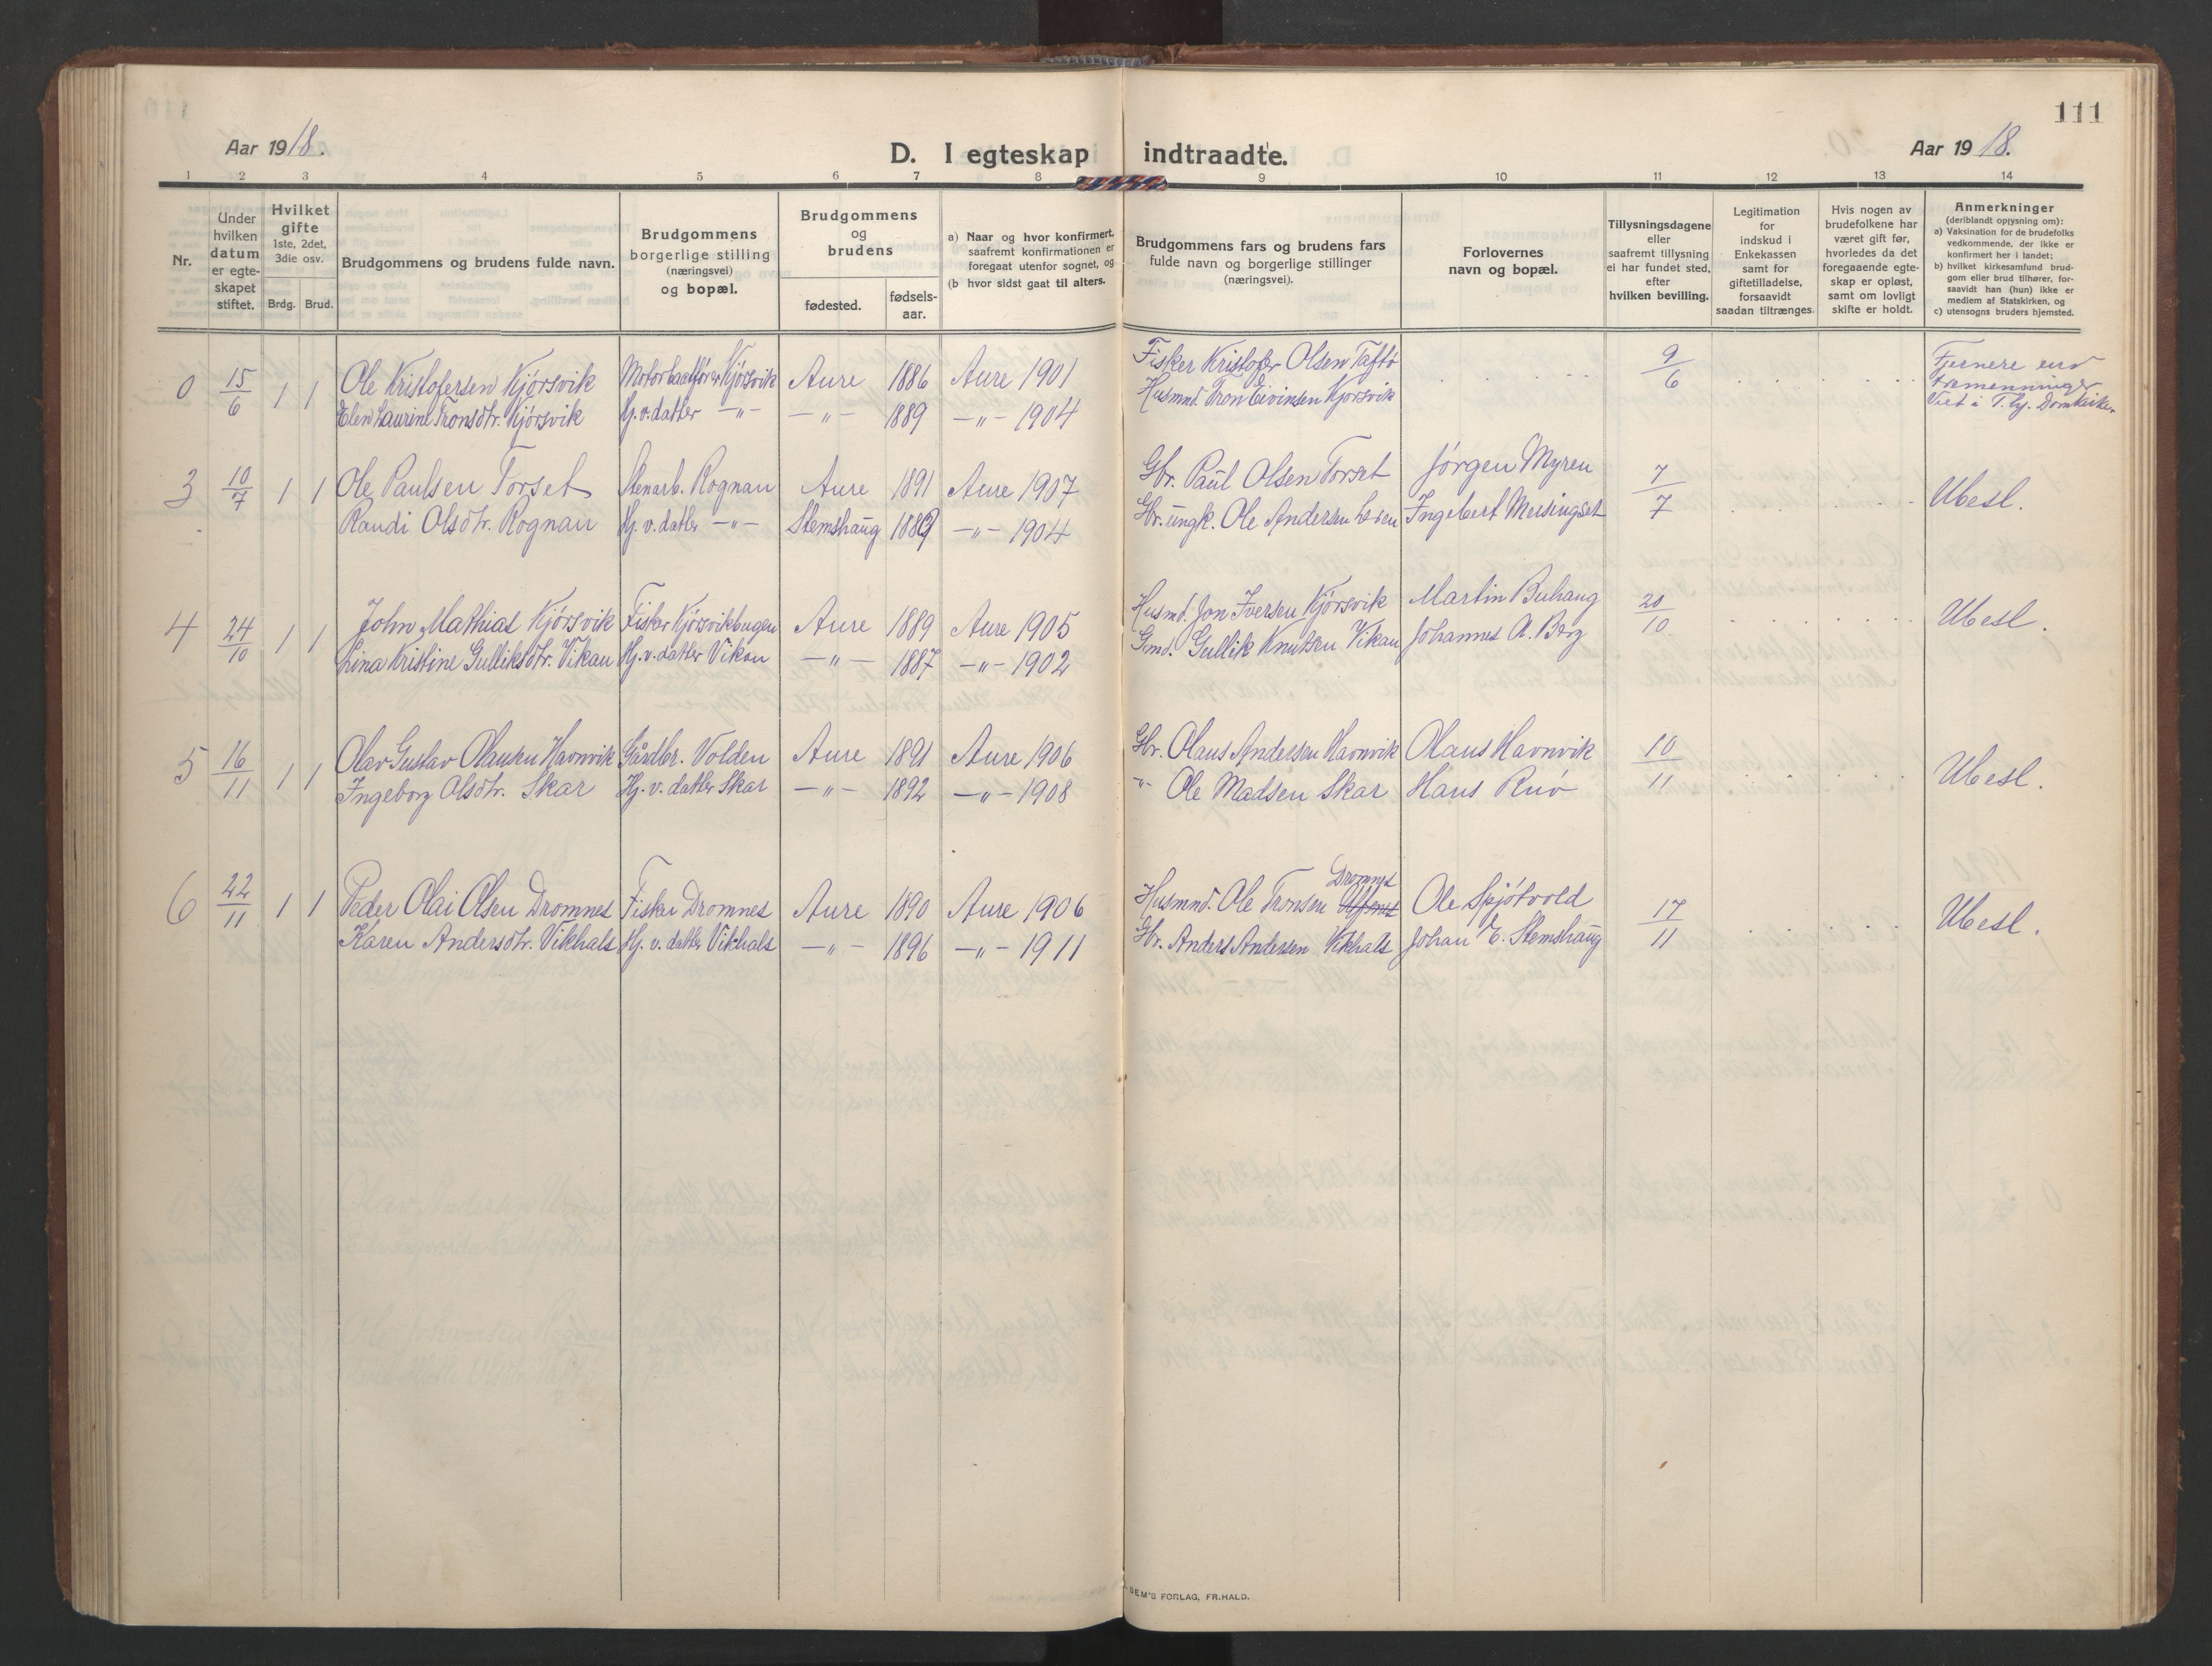 111
Aar 1918.
D. I egteskap indtraadte.
Aar 1918.
1 2 3 4 5 6 7 8 9 10 11 12 13 14
Nr.
Under hvilken datum er egte-skapet stiftet.
Hvilket gifte 1ste, 2det, 3die osv.
Brdg. Brud.
Brudgommens og brudens fulde navn.
Brudgommens borgerlige stilling (næringsvei) og bopæl.
Brudgommens og brudens
fødested. fødsels-aar.
a) Naar og hvor konfirmert, saafremt konfirmationen er foregaat utenfor sognet, og
(b hvor sidst gaat til alters.
Brudgommens fars og brudens fars fulde navn og borgerlige stillinger (næringsvei).
Forlovernes navn og bopæl.
Tillysningsdagene eller saafremt tillysning ei har fundet sted, efter hvilken bevilling.
Legitimation for indskud i Enkekassen samt for giftetilladelse, forsaavidt saadan tiltrænges.
Hvis nogen av brudefolkene har været gift før, hvorledes da det foregaaende egte-skap er opløst, samt om lovligt skifte er holdt.
Anmerkninger (deriblandt oplysning om):
a) Vaksination for de brudefolks vedkommende, der ikke er konfirmert her i landet;
b) hvilket kirkesamfund brud-gom eller brud tilhører, for-saavidt han (hun) ikke er medlem af Statskirken, og
c) utensogns bruders hjemsted.
0 15/6 1 1 Ole Kristofersen Kjørsvik Motorbaatfører Kjørsvik Aure 1886 Aure 1901 Fisker Kristofer Olsen Taftø 9/6 Fjernere end tremenninger
Elen Laurine Tronsdtr. Kjørsvik Hj.v. datter -"- -"- 1889 -"- 1904 Husmnd. Tron Eivinsen Kjørsvik Viet i T.hj. Domkirke.
3 10/7 1 1 Ole Paulsen Torset Stenarb. Rognan Aure 1891 Aure 1907 Gbr. Paul Olsen Torset Jørgen Myren 7/7 Ubesl.
Randi Olsdtr. Rognan Hj. v. datter -"- Stemshaug 1889 -"- 1904 Gbr. ungk. Ole Andersen Ingebert Meisingset
4 24/10 1 1 John Mathias Kjørsvik Fisker Kjørsvikbugen Aure 1889 Aure 1905 Husmd. Jon Iversen Kjørsvik Martin Buhaug 20/10 Ubesl.
Lina Kristine Gulliksdtr. Vikan Hj.v. datter Vikan -"- 1887 -"- 1902 Gmd. Gullik Knutsen Vikan Johannes A. Berg
5 16/11 1 1 Olav Gustav Olausen Havnvik Gårdbr. Volden Aure 1891 Aure 1906 Gbr. Olaus Andersen Havnvik Olaus Havnvik 10/11 Ubesl.
Ingeborg Olsdtr. Skar Hj. v. datter Skar -"- 1892 -"- 1908 " Ole Madsen Skar Hans Ruø
6 22/11 1 1 Peder Olai Olsen Dromnes Fisker Dromnes Aure 1890 Aure 1906 Husmnd. Ole Tronsen Dromnes Ole Spjøtvold 17/11 Ubesl.
Karen Andersdtr. Vikhals Hj. v. datter Vikhals -"- 1896 -"- 1911 Gbr. Anders Andersen Vikhals Johan E. Stemshaug
SEM'S FORLAG, FR.HALD.